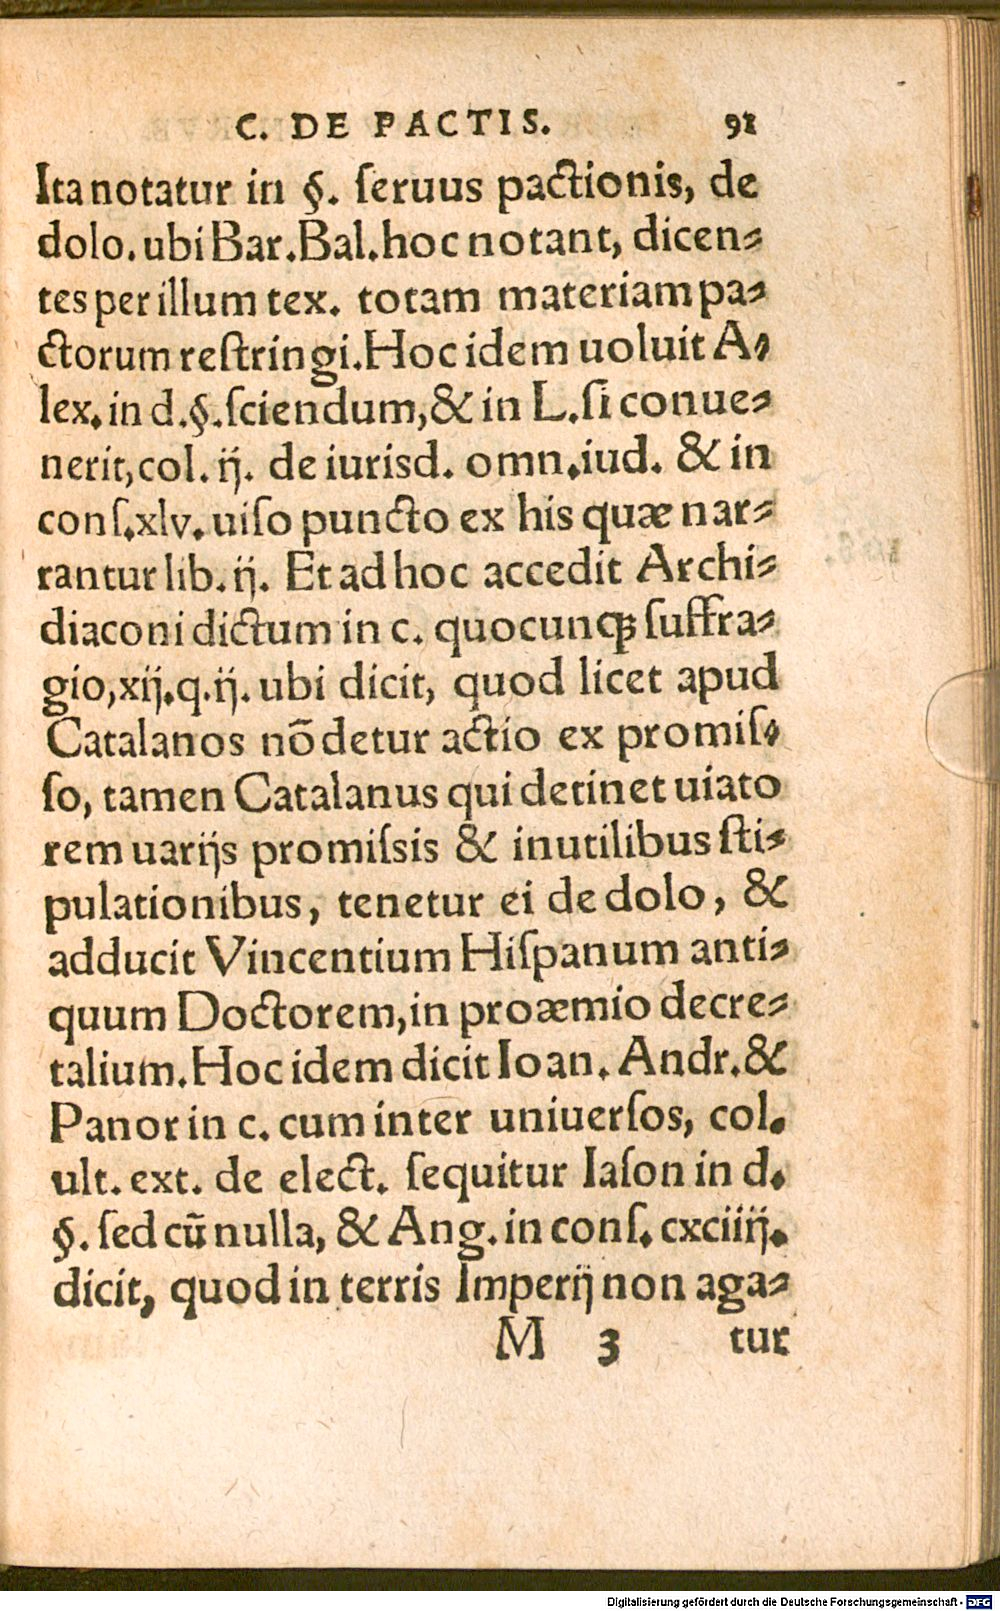 C. DE PACTIS. 91
Ita notatur in §. ſeruus pactionis, de
dolo. ubi Bar. Bal. hoc notant, dicen⸗
tes per illum tex. totam materiam pa⸗
ctorum reſtringi. Hoc idem uoluit A⸗
lex. in d. §. ſciendum, & in L. ſi conue⸗
nerit, col. ij. de iurisd. omn. iud. & in
conſ. xlv. uiſo puncto ex his quæ nar⸗
rantur lib. ij. Et ad hoc accedit Archi⸗
diaconi dictum in c. quocunqꝫ ſuffra⸗
gio, xij. q. ij. ubi dicit, quod licet apud
Catalanos nō detur actio ex promiſ⸗
ſo, tamen Catalanus qui detinet uiato
rem uarijs promiſsis & inutilibus ſti⸗
pulationibus, tenetur ei de dolo, &
adducit Vincentium Hiſpanum anti⸗
quum Doctorem, in proæmio decre⸗
talium. Hoc idem dicit Ioan. Andr. &
Panor in c. cum inter uniuerſos, col.
ult. ext. de elect. ſequitur Iaſon in d.
§. ſed cū nulla, & Ang. in conſ. cxciiij.
dicit, quod in terris Imperij non aga⸗
M 3 tur
Digitalisierung gefördert durch die Deutsche Forschungsgemeinschaft - DFG